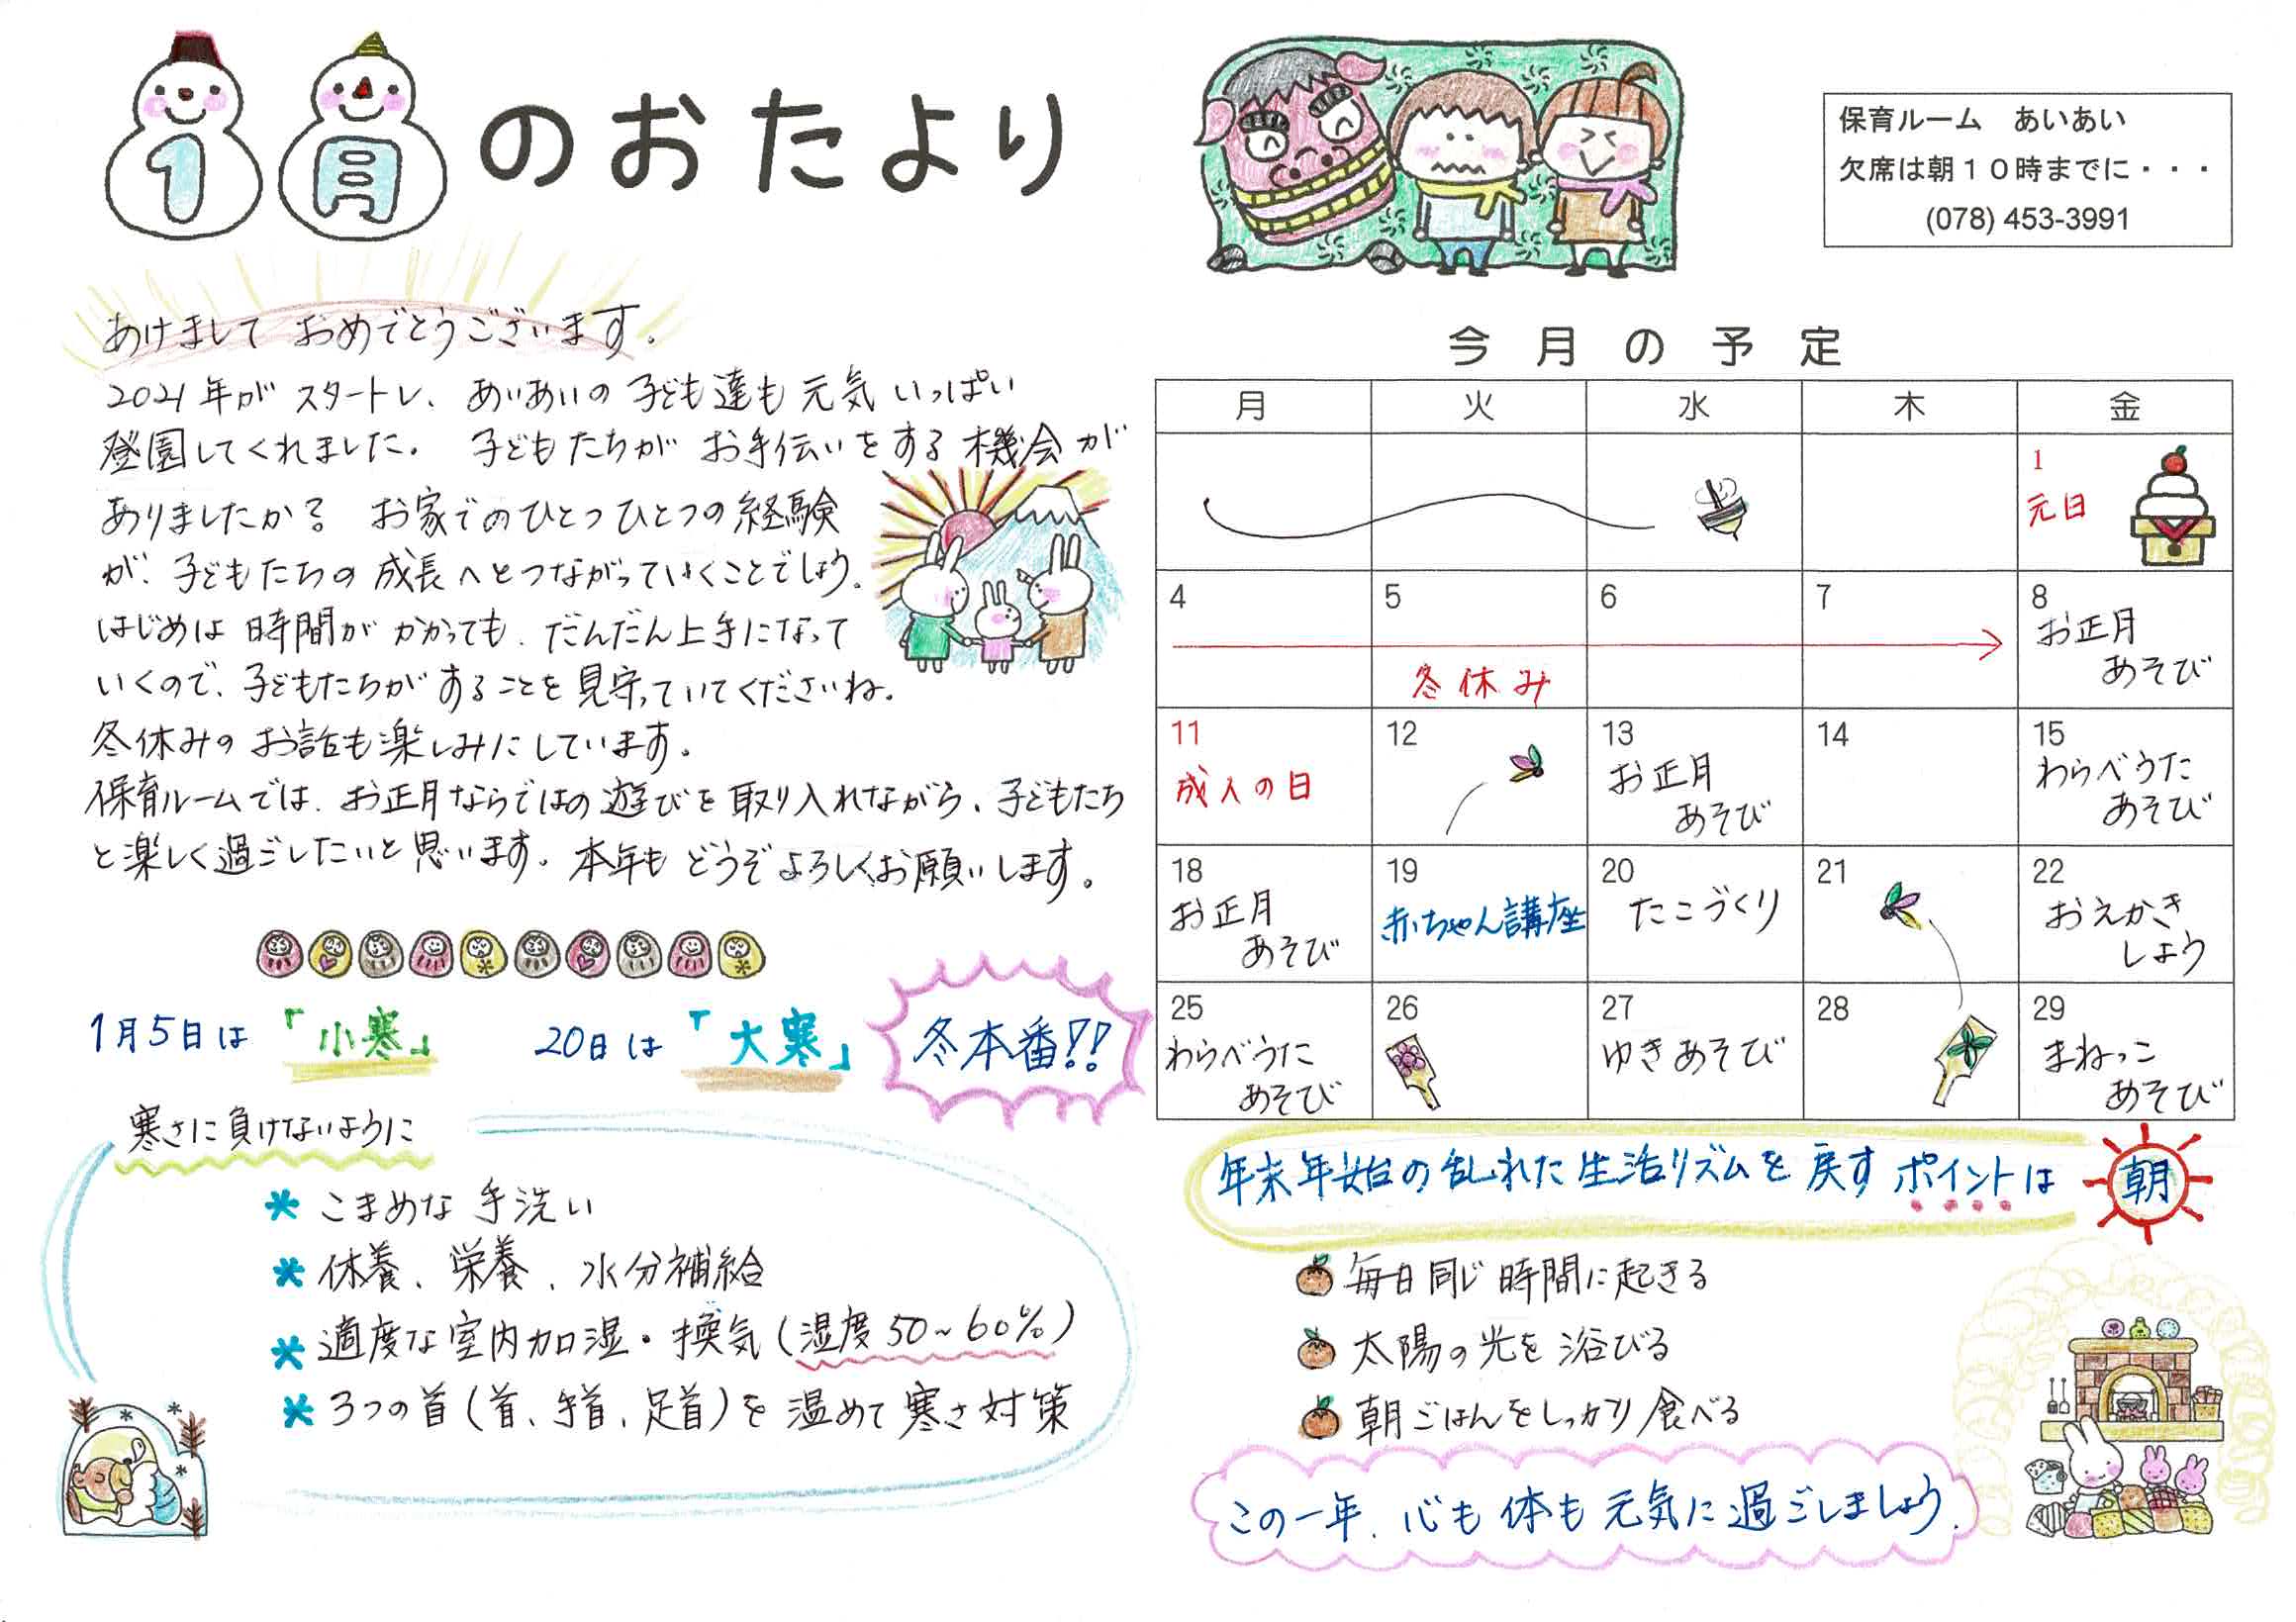 1月のおたより
保育ルーム　あいあい
欠席は朝１０時までに・・・
(078) 453-3991
あけまして おめでとうございます。
2021年が スタートし、あいあいの 子ども達も 元気 いっぱい
登園してくれました。 子どもたちが お手伝いをする 機会が
ありましたか？ お家でのひとつひとつの経験
が、子どもたちの 成長へとつながっていくことでしょう。
はじめは 時間が かかっても、だんだん上手になって
いくので、子どもたちが することを見守っていてくださいね。
冬休みの お話も楽しみにしています。
保育ルームでは、お正月ならではの 遊びを取り入れながら、子どもたち
と楽しく過ごしたいと思います。本年も どうぞよろしくお願いします。
1月5日は 「小寒」 20日は 「大寒」 冬本番!!
寒さに負けないように
* こまめな 手洗い
* 休養、栄養、水分補給
* 適度な室内加湿・換気（湿度50~60%）
* 3つの首（首、手首、足首）を温めて寒さ対策
今月の予定
月 火 水 木 金
1
元日
4 5 6 7 8
お正月
あそび
冬休み
11 12 13 14 15
成人の日
お正月
あそび
わらべうた
あそび
18 19 20 21 22
お正月
あそび
赤ちゃん講座
たこづくり
おえかき
しよう
25 26 27 28 29
わらべうた
あそび
ゆきあそび
まねっこ
あそび
年末年始の乱れた生活リズムを戻す ポイントは 朝
毎日同じ時間に起きる
太陽の光を浴びる
朝ごはんをしっかり食べる
この一年、心も体も元気に過ごしましょう。